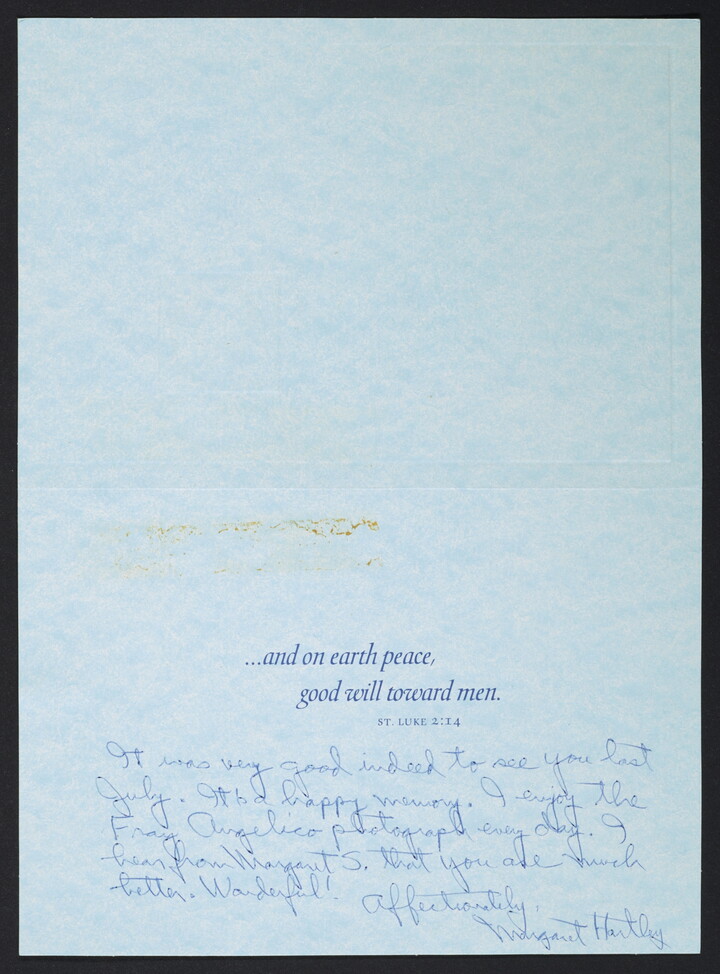 ...and on earth peace,
good will toward men.
ST. LUKE 2:14
It was very good indeed to see you last
July. It's a happy memory. I enjoy the
Fray Angelico photograph every day. I
hear from Margaret S. that you are much
better. Wonderful!
Affectionately,
Margaret Hartley